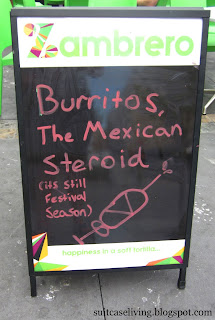 Zambrero
Burritos,
The Mexican
Steroid
(its still
Festival
Season)
happiness in a soft tortilla...
suitcaseliving.blogspot.com